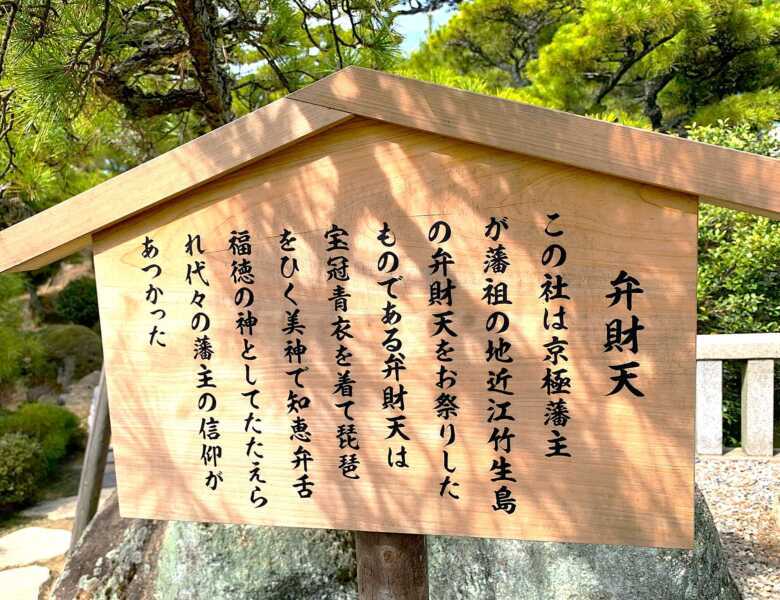 弁財天
この社は京極藩主
が藩祖の地近江竹生島
の弁財天をお祭りした
ものである弁財天は
宝冠青衣を着て琵琶
をひく美神で知恵弁舌
福徳の神としてたたえら
れ代々の藩主の信仰が
あつかった